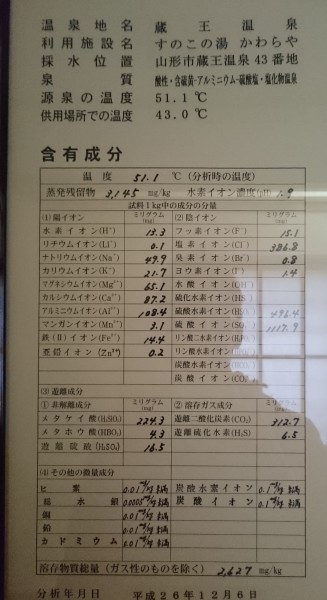 温泉地名 蔵王温泉
利用施設名 すのこの湯 かわらや
採水位置 山形市蔵王温泉43番地
泉質 酸性・含硫黄-アルミニウム-硫酸塩・塩化物温泉
源泉の温度 51.1 ℃
供用場所での温度 43.0 ℃
含有成分
温度 51.1 ℃(分析時の温度)
蒸発残留物 3,145 mg/kg 水素イオン濃度(pH)
試料1kg中の成分の分量
(1)陽イオン ミリグラム(mg) (2)陰イオン ミリグラム(mg)
水素イオン(H⁺) 15.3 フッ素イオン(F⁻) 15.1
リチウムイオン(Li⁺) 0.1 塩素イオン(Cl⁻) 386.8
ナトリウムイオン(Na⁺) 49.9 臭素イオン(Br⁻) 0.8
カリウムイオン(K⁺) 21.7 ヨウ素イオン(I⁻) 1.4
マグネシウムイオン(Mg²⁺) 65.1 水酸イオン(OH⁻)
カルシウムイオン(Ca²⁺) 87.2 硫化水素イオン(HS⁻)
アルミニウムイオン(Al³⁺) 108.4 硫酸水素イオン 496.4
マンガンイオン(Mn²⁺) 3.1 硫酸イオン 1117.9
鉄(II)イオン(Fe²⁺) 14.4 リン酸二水素イオン
亜鉛イオン(Zn²⁺) 0.2 リン酸水素イオン
炭酸水素イオン
炭酸イオン
(3)遊離成分
①非解離成分 ミリグラム(mg) ②溶存ガス成分 ミリグラム(mg)
メタケイ酸(H₂SiO₃) 224.3 遊離二酸化炭素(CO₂) 312.7
メタホウ酸(HBO₂) 4.3 遊離硫化水素(H₂S) 6.5
遊離硫酸(H₂SO₄) 16.5
(4)その他の微量成分
ヒ素 0.01mg/kg未満 炭酸水素イオン 0.1mg/kg未満
総水銀 0.0005mg/kg未満 炭酸イオン 0.1mg/kg未満
銅 0.01mg/kg未満
鉛 0.01mg/kg未満
カドミウム 0.01mg/kg未満
溶存物質総量(ガス性のものを除く) 2,627 mg/kg
分析年月日 平成26年12月6日